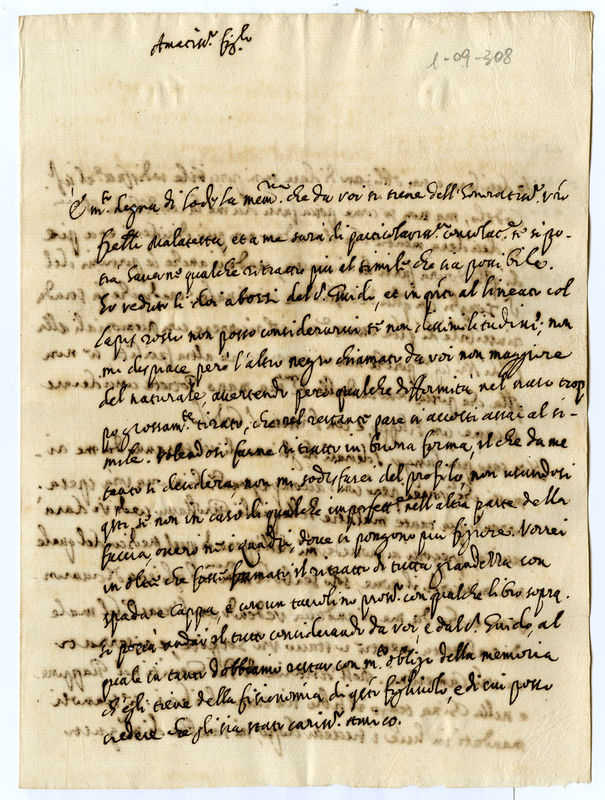 Amatiss.º figlo
1-09-308
È m.to degna di lode la mem.ria che da voi si tiene dell'Honoratiss.º v.ro
frello Malatesta, et a me sara di particolariss.ª consolac.e se si po-
tra haverne qualche ritratto piu al simile che sia possibile.
Ho veduto li doi abozzi del S. Guido, et in q.to al lineato col
lapis rosso non posso considerarvi se non dissimilitudini; non
mi despiace però l'altro negro chiamato da voi non maggiore
del naturale, avertendo però qualche difformità nel naso trop
po grossam.te tirato, che nel restante pare si accosti assai al si-
mile. Volendosi farne ritratto in buona forma, il che da me
tanto si desidera, non mi sodisfarei del profilo, non usandosi
q.sti, se non in caso di qualche imperfett.e nell'altra parte della
faccia, overo ne i quadri, dove si pongono piu figure. Vorrei
in oltre che fosse formato il ritratto di tutta grandezza con
spada e cappa, e con un tavolino pross.º con qualche libro sopra.
Si potrà andar il tutto considerando da voi, e dal S. Guido, al
quale in tanto dobbiamo restar con m.to obligo della memoria
ch'egli tiene della fisionomia di q.sto figliuolo, e di cui posso
credere che gli sia stato cariss.º Amico.